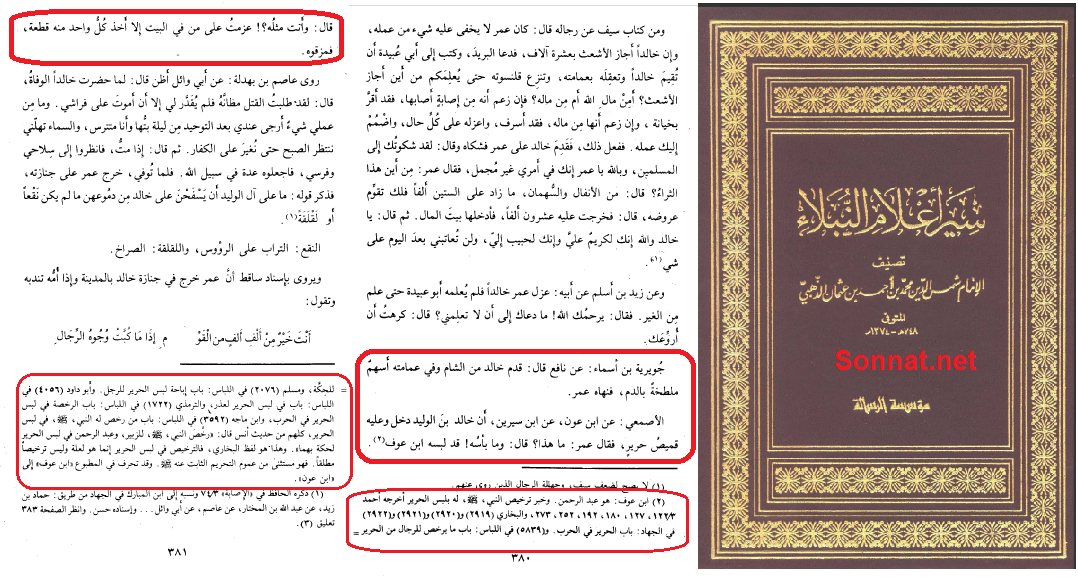 سير أعلام النبلاء
تصنيف
الإمام شمس الدين محمد بن أحمد بن عثمان الذهبي
المتوفى
٧٤٨هـ - ١٣٧٤م
Sonnat.net
مؤسسة الرسالة
ومن كتاب سيف عن رجاله قال: كان عمر لا يخفى عليه شيء من عمله،
وإن خالداً أجاز الأشعث بعشرة آلاف، فدعا البريدَ، وكتب إلى أبي عُبيدة أن
تُقِيمَ خالداً وتعقِلَه بعمامته، وتنزِع قلنسوته حتى يُعلِمَكم من أين أجاز
الأشعث؟ أَمِنْ مالِ الله أم مِن ماله؟ فإن زعم أنه مِن إصابةٍ أصابها، فقد أقرَّ
بخيانة، وإن زعم أنها مِن ماله، فقد أسرف، واعزله على كُلِّ حال، واضْمُمْ
إليك عمله. ففعل ذلك، فَقَدِمَ خالد على عمر فشكاه وقال: لقد شكوتُك إلى
المسلمين، وبالله يا عمر إنك في أمري غير مُجمل، فقال عمر: مِن أين هذا
الثراءُ؟ قال: من الأنفال والسُّهمان، ما زاد على الستين ألفاً فلك تقوِّم
عروضه، قال: فخرجت عليه عشرون ألفاً، فأدخلها بيتَ المال. ثم قال: يا
خالد والله إنك لكريمٌ عليَّ وإنك لحبيب إليّ، ولن تُعاتبني بعدَ اليوم على
شي(١).
وعن زيد بن أسلم عن أبيه: عزل عمر خالداً فلم يُعلمه أبو عبيدة حتى علم
مِن الغير. فقال: يرحمُك الله! ما دعاك إلى أن لا تعلِمني؟ قال: كرهتُ أن
أُروِّعَك.
جُويرية بن أسماء: عن نافع قال: قدم خالد من الشام وفي عمامته أسهمٌ
ملطخةٌ بالدم، فنهاه عمر.
الأصمعي: عن ابن عون، عن ابن سيرين، أن خالد بنَ الوليد دخل وعليه
قميصُ حرير، فقال عمر: ما هذا؟ قال: وما بأسُه! قد لبسه ابن عوف(٢).
(١) لا يصح لضعف سيف، وجهالة الرجال الذين روى عنهم.
(٢) ابن عوف: هو عبد الرحمن. وخبر ترخيص النبي، ﷺ، له بلبس الحرير أخرجه أحمد
١٢٢/٣، ١٢٧، ١٨٠، ١٩٢، ٢٥٢، ٢٧٣، والبخاري (٢٩١٩) و(٢٩٢٠) و(٢٩٢١) و(٢٩٢٢)
في الجهاد: باب الحرير في الحرب. و(٥٨٣٩) في اللباس: باب ما يرخص للرجال من الحرير =
٣٨٠
قال: وأنت مثلُه؟! عزمتُ على من في البيت إلا أخذ كلُّ واحد منه قطعة،
فمزقوه.
روى عاصم بن بهدلة: عن أبي وائل أظن قال: لما حضرت خالداً الوفاةُ،
قال: لقد طلبتُ القتل مظانَّهُ فلم يُقَدَّر لي إلا أن أموتَ على فراشي. وما مِن
عملي شيءٌ أرجى عندي بعد التوحيد مِن ليلة بتُّها وأنا متترس، والسماء تهلّني
ننتظر الصبح حتى نُغيرَ على الكفار. ثم قال: إذا متُّ، فانظروا إلى سِلاحي
وفرسي، فاجعلوه عدة في سبيل الله. فلما تُوفي، خرج عمر على جنازته،
فذكر قوله: ما على آل الوليد أن يَسْفَحْنَ على خالد مِن دموعهن ما لم يكن نَقْعاً
أو لَقْلَقَةً(١).
النقع: التراب على الرؤوس، واللقلقة: الصراخ.
ويروى بإسناد ساقط أنَّ عمر خرج في جنازة خالد بالمدينة وإذا أُمُّه تندبه
وتقول:
أَنْتَ خَيْرٌ مِنْ أَلْفِ أَلْفٍ مِن الْقَوْ مِ إِذَا مَا كُبَّتْ وُجُوهُ الرِّجَالِ
= للحِكَّة، ومسلم (٢٠٧٦) في اللباس: باب إباحة لبس الحرير للرجل. وأبو داود (٤٠٥٦) في
اللباس: باب في لبس الحرير لعذر، والترمذي (١٧٢٢) في اللباس: باب الرخصة في لبس
الحرير في الحرب، وابن ماجه (٣٥٩٢) في اللباس: باب من رخص له النبي، ﷺ، في لبس
الحرير، كلهم من حديث أنس قال: «رخَّصَ النبي، ﷺ، للزبير، وعبد الرحمن في لبس الحرير
لحكة بهما». وهذا هو لفظ البخاري، فالترخيص في لبس الحرير إنما هو لعلة وليس ترخيصاً
مطلقاً. فهو مستثنىً من عموم التحريم الثابت عنه ﷺ. وقد تحرف في المطبوع «ابن عوف» إلى
«ابن عون».
(١) ذكره الحافظ في «الإصابة» ٧٤/٣ ونسبه إلى ابن المبارك في الجهاد من طريق: حماد بن
زيد، عن عبد الله بن المختار، عن عاصم، عن أبي وائل... وإسناده حسن. وانظر الصفحة ٣٨٣
تعليق (٣).
٣٨١